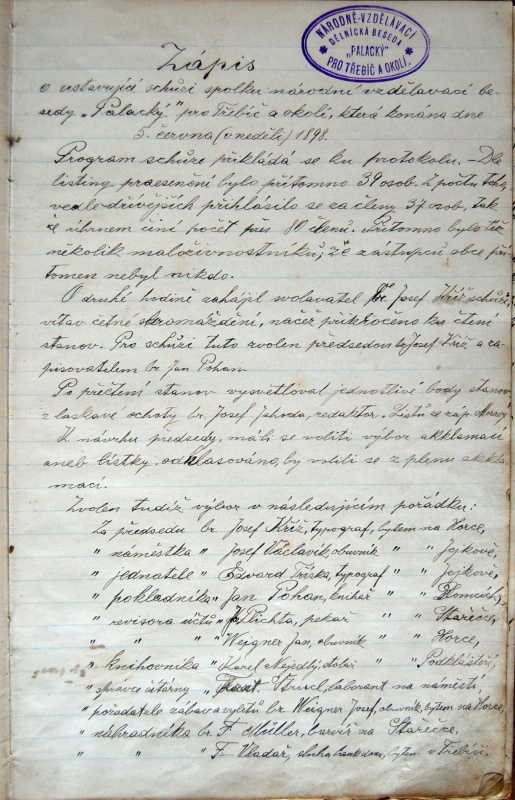 NÁRODNĚ-VZDĚLÁVACÍ
DĚLNICKÁ BESEDA
„PALACKÝ“
PRO TŘEBÍČ A OKOLÍ.
Zápis
o ustavující schůzi spolku národní vzdělavací be-
sedy „Palacký“ pro Třebíč a okolí, která konána dne
5. června (v neděli) 1898.
Program schůze přikládá se ku protokolu. – Dle
listiny praesenční bylo přítomno 39 osob. Z počtu toho,
vedle dřívějších přihlásilo se za členy 37 osob, tak
že úhrnem činí počet přes 80 členů. Přítomno bylo též
několik maloživnostníků, ze zástupců obce pří-
tomen nebyl nikdo.
O druhé hodině zahájil svolavatel br. Josef Kříž schůzi,
vítav četné shromáždění, načež přikročeno ku čtení
stanov. Pro schůzi tuto zvolen předsedou br. Josef Kříž a za-
pisovatelem br. Jan Pohan.
Po přečtení stanov vysvětloval jednotlivé body stanov
z laskavé ochoty br. Josef Jahoda, redaktor „Listů ze záp. Moravy“
K návrhu předsedy, máli se voliti výbor akklamací
aneb lístky, odhlasováno, by volili se z plenu akkla-
mací.
Zvolen tudíž výbor v následujícím pořádku:
Za předsedu br. Josef Kříž, typograf, bytem na Horce,
„ náměstka „ Josef Václavík, obuvník „ „ Jejkově,
„ jednatele „ Edvard Tříska, typograf „ „ Jejkově,
„ pokladníka „ Jan Pohan, knihař „ „
„ revisora účtů „ J. Plichta, pekař „ „ Stařečce,
„ „ „ Weigner Jan, obuvník „ „ Horce,
„ knihovníka „ Karel Nejedlý, „ „ Podklášteří,
„ správce čítárny „ Frant. laborant na náměstí
„ pořadatele zábav a výletů br. Weigner Josef, obuvník, bytem na Horce,
„ náhradníka br. F. Müller, barvíř na Stařečce.
„ „ „ F. Vladař, sluha bank. domu, bytem v Třebíči.